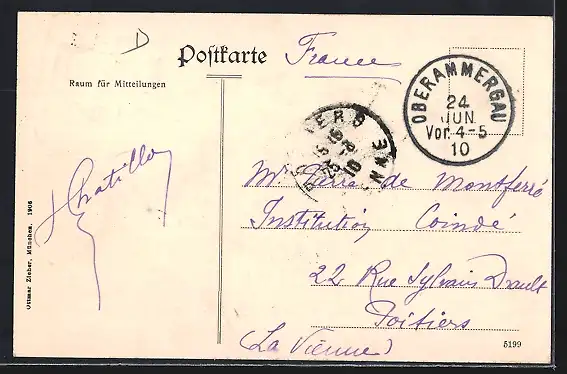 D
Postkarte
France
Raum für Mitteilungen
OBERAMMERGAU
24
JUN.
Vor. 4-5
10
Chatillon
Mr de Montferré
Institution Coindé
22 Rue Sylvain Drault
Poitiers
(La Vienne)
Ottmar Zieher, München. 1906
5199